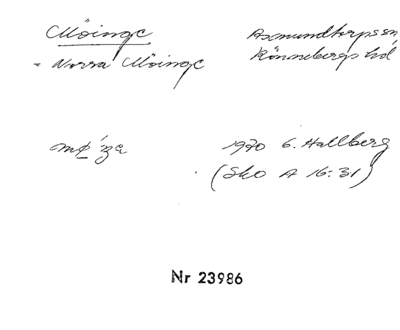 Möinge Asmundtorps sn,
= Norra Möinge Rönnebergs hd
mø´ȥa 1970 G. Hallberg
(Sko A 16:31)
Nr 23986